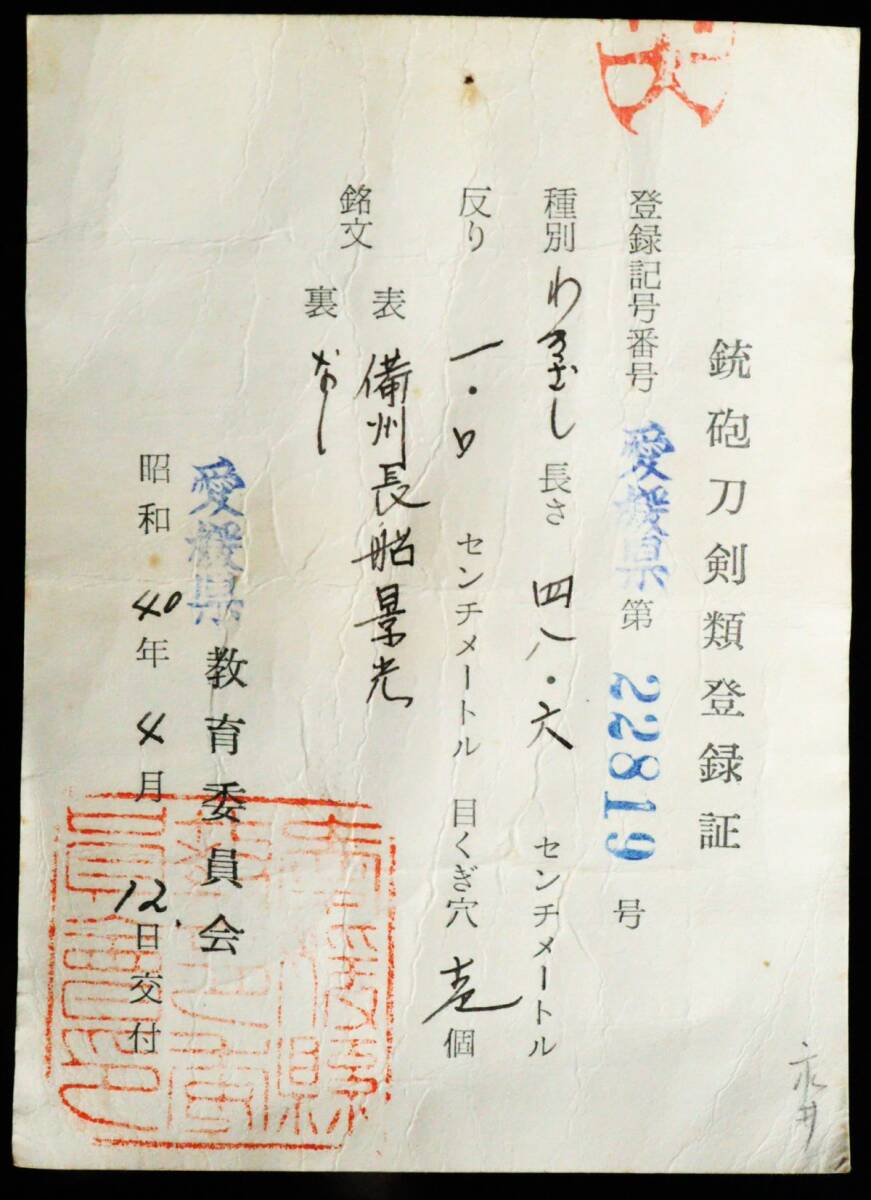 銃砲刀剣類登録証
登録記号番号 愛媛県 第 22819 号
種別 わきざし 長さ 四八・六 センチメートル
反り 一・〇 センチメートル 目くぎ穴 壱 個
銘文 表 備州長船景光
裏 なし
愛媛県教育委員会
昭和 40年 4月 12日交付
永井